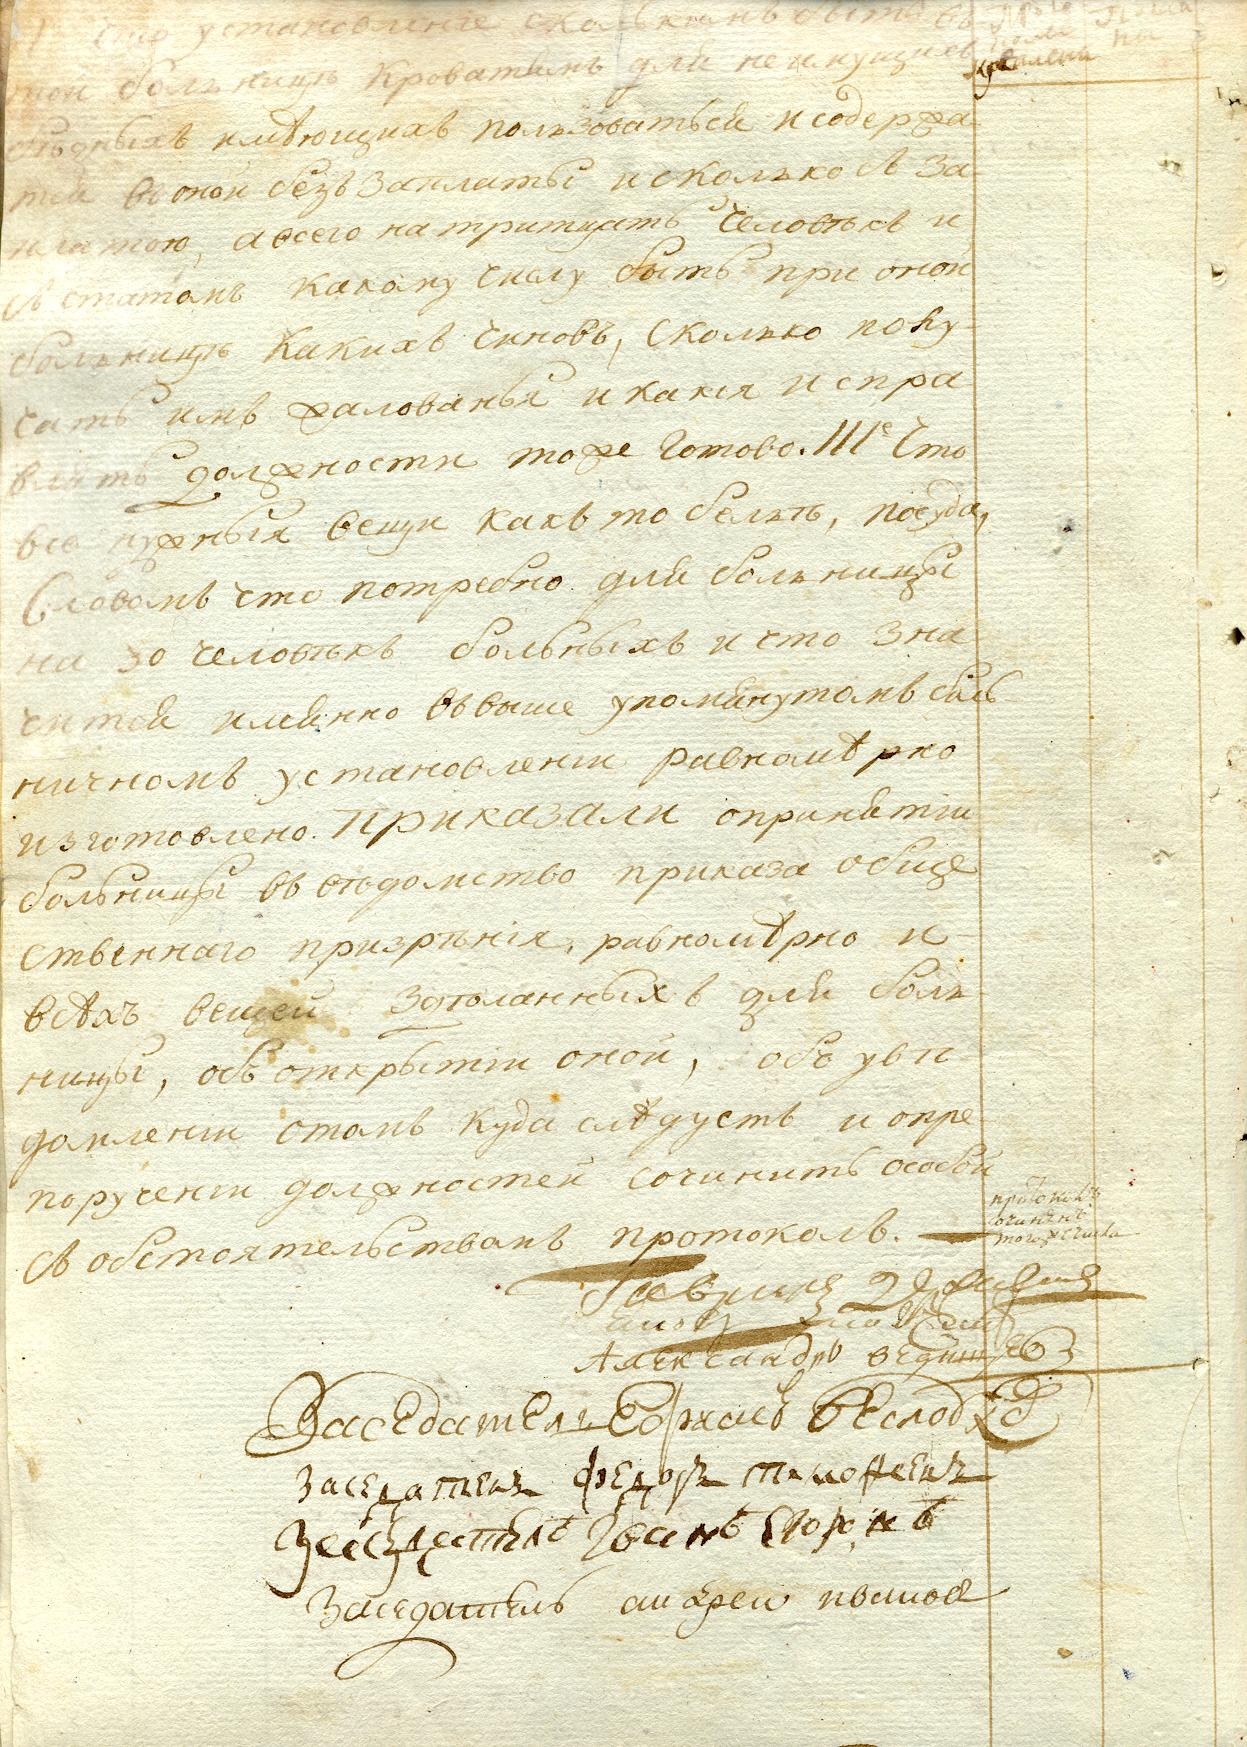 что установленіе сколькимъ быть въ
той больницѣ кроватямъ для неимущихъ
бѣдныхъ имѣющихъ пользоваться и содержа
тся въ оной безъ заплаты и сколько съ за
платою, а всего на тритцать человѣкъ и
съ статомъ какому числу быть при оной
больницѣ какихъ чиновъ, сколько полу
чать имъ жалованья и какія испра
влять должности тоже готово. IIIе Что
все нужныя вещи какъ то белье, посуда,
Словомъ что потребно для больницы
на 30 человѣкъ больныхъ и что зна
чится имянно въ выше упомянутомъ боль
ничномъ установленіи равномѣрно
изготовлено. Приказали о принятіи
больницы въ вѣдомство приказа обще
ственнаго призрѣнія, равномѣрно и
всѣхъ вещей здѣланныхъ для боль
ницы, объ открытіи оной, объ увѣ
домленіи о томъ куда слѣдуетъ и о пре
порученіи должностей сочинить особой
съ обстоятельствамъ протоколъ.
протоколъ
сочиненъ
того ж числа
Александръ
Заседатель
Заседатель Федоръ Тимофеевъ
Заседатель Иванъ
Заседатель андреи ивановъ